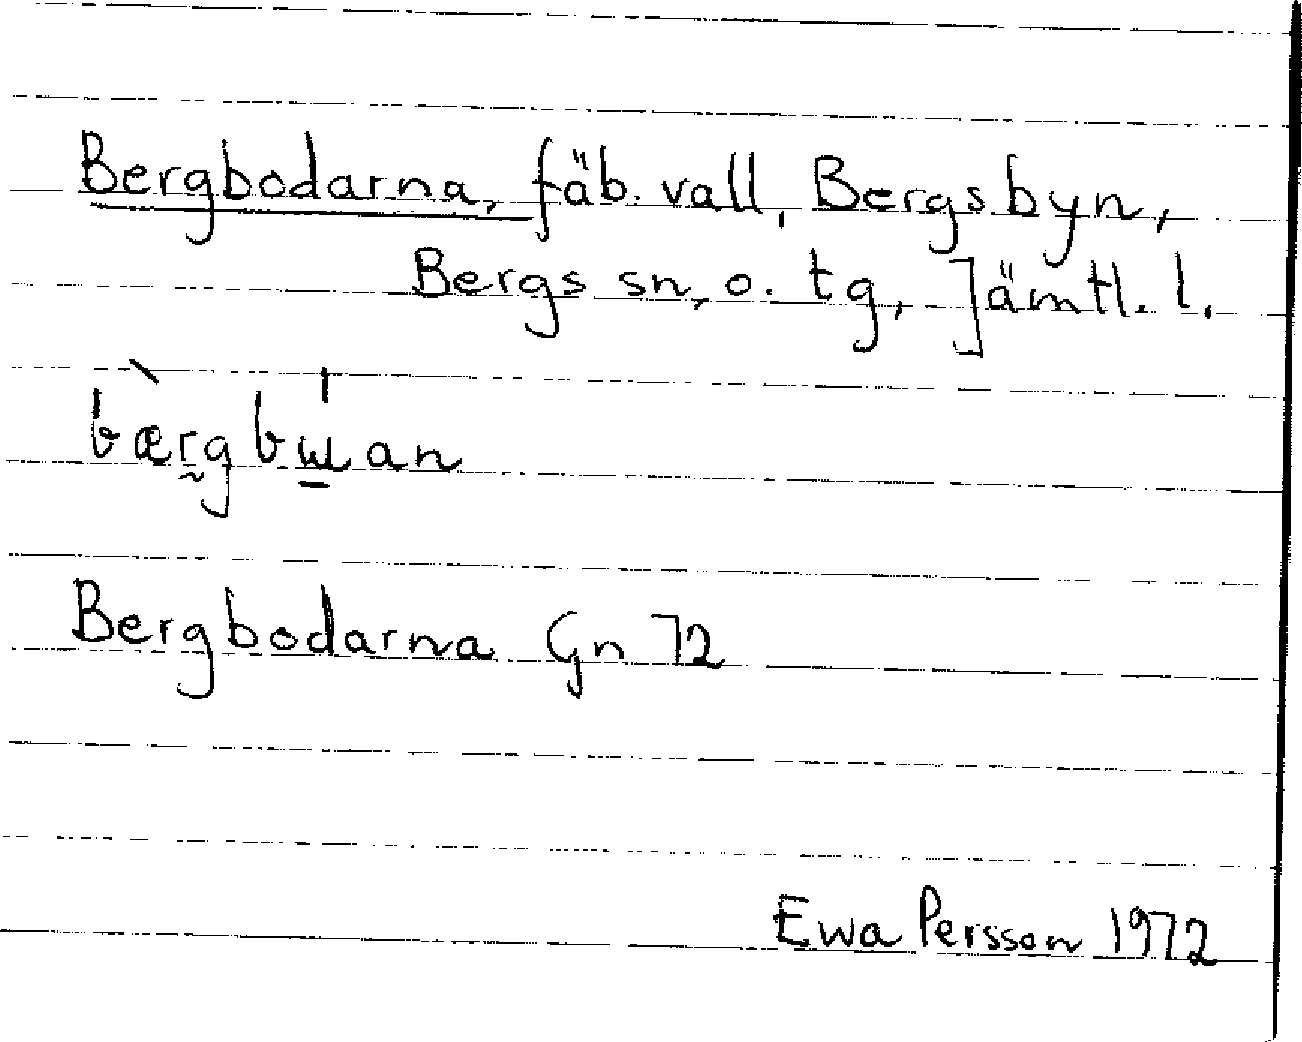 Bergbodarna, fäb. vall, Bergsbyn,
Bergs sn, o. tg, Jämtl. l.
bær̰gbɯ̲an
Bergbodarna Gn 72
Ewa Persson 1972